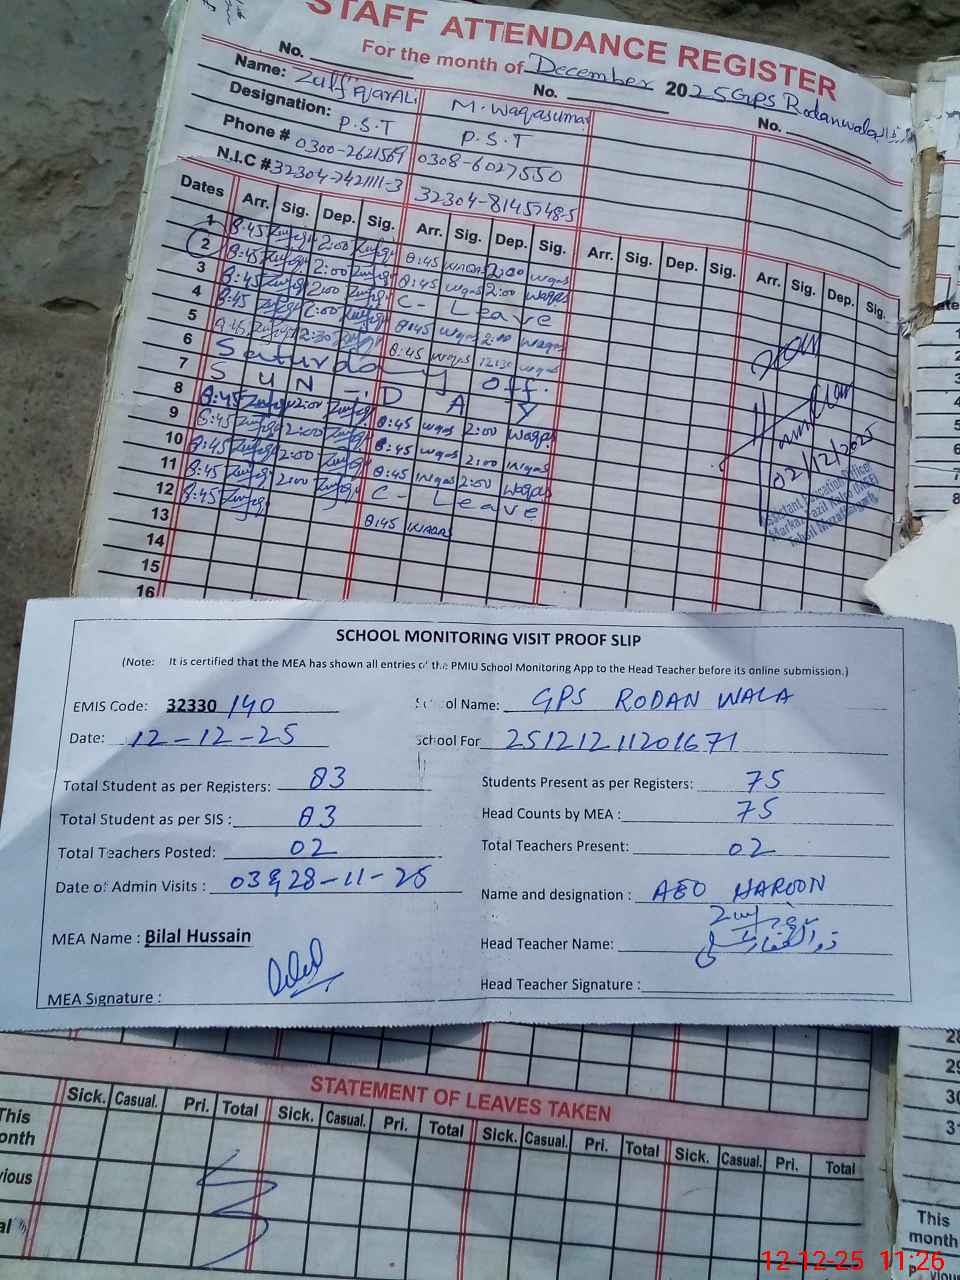 STAFF ATTENDANCE REGISTER
For the month of December 2025 GPS Rodanwala
No. No. No.
Name: Zulfiqar Ali M. Waqas umar
Designation: P.S.T P.S.T
Phone # 0300-2621569 0308-6027550
N.I.C # 32304-7421111-3 32304-8145748-5
Dates Arr. Sig. Dep. Sig. Arr. Sig. Dep. Sig. Arr. Sig. Dep. Sig. Arr. Sig. Dep. Sig.
1 8:45 2:00 8:45 Waqas 2:00 Waqas
2 8:45 2:00 8:45 Waqas 2:00 Waqas
3 8:45 2:00 C- Leave
4 8:45 2:00 8:45 Waqas 2:00 Waqas
5 8:45 2:30 8:45 Waqas 12:30 Waqas
6 Saturday off.
7 SUN-DAY
8 8:45 2:00 8:45 Waqas 2:00 Waqas
9 8:45 2:00 8:45 Waqas 2:00 Waqas
10 8:45 2:00 8:45 Waqas 2:00 Waqas
11 8:45 2:00 C- Leave
12 8:45 8:45 Waqas
13
14
15
16
02/12/2025
Assistant Education Officer
SCHOOL MONITORING VISIT PROOF SLIP
(Note: It is certified that the MEA has shown all entries of the PMIU School Monitoring App to the Head Teacher before its online submission.)
EMIS Code: 32330 140 School Name: GPS RODAN WALA
Date: 12-12-25 School For 25121211201671
Total Student as per Registers: 83 Students Present as per Registers: 75
Total Student as per SIS : 83 Head Counts by MEA : 75
Total Teachers Posted: 02 Total Teachers Present: 02
Date of Admin Visits : 03 & 28-11-25 Name and designation : AEO HAROON
MEA Name : Bilal Hussain Head Teacher Name: ذوالفقار علی
MEA Signature : Head Teacher Signature :
STATEMENT OF LEAVES TAKEN
Sick. Casual. Pri. Total Sick. Casual. Pri. Total Sick. Casual. Pri. Total Sick. Casual. Pri. Total
This
month
This
month
12-12-25 11:26